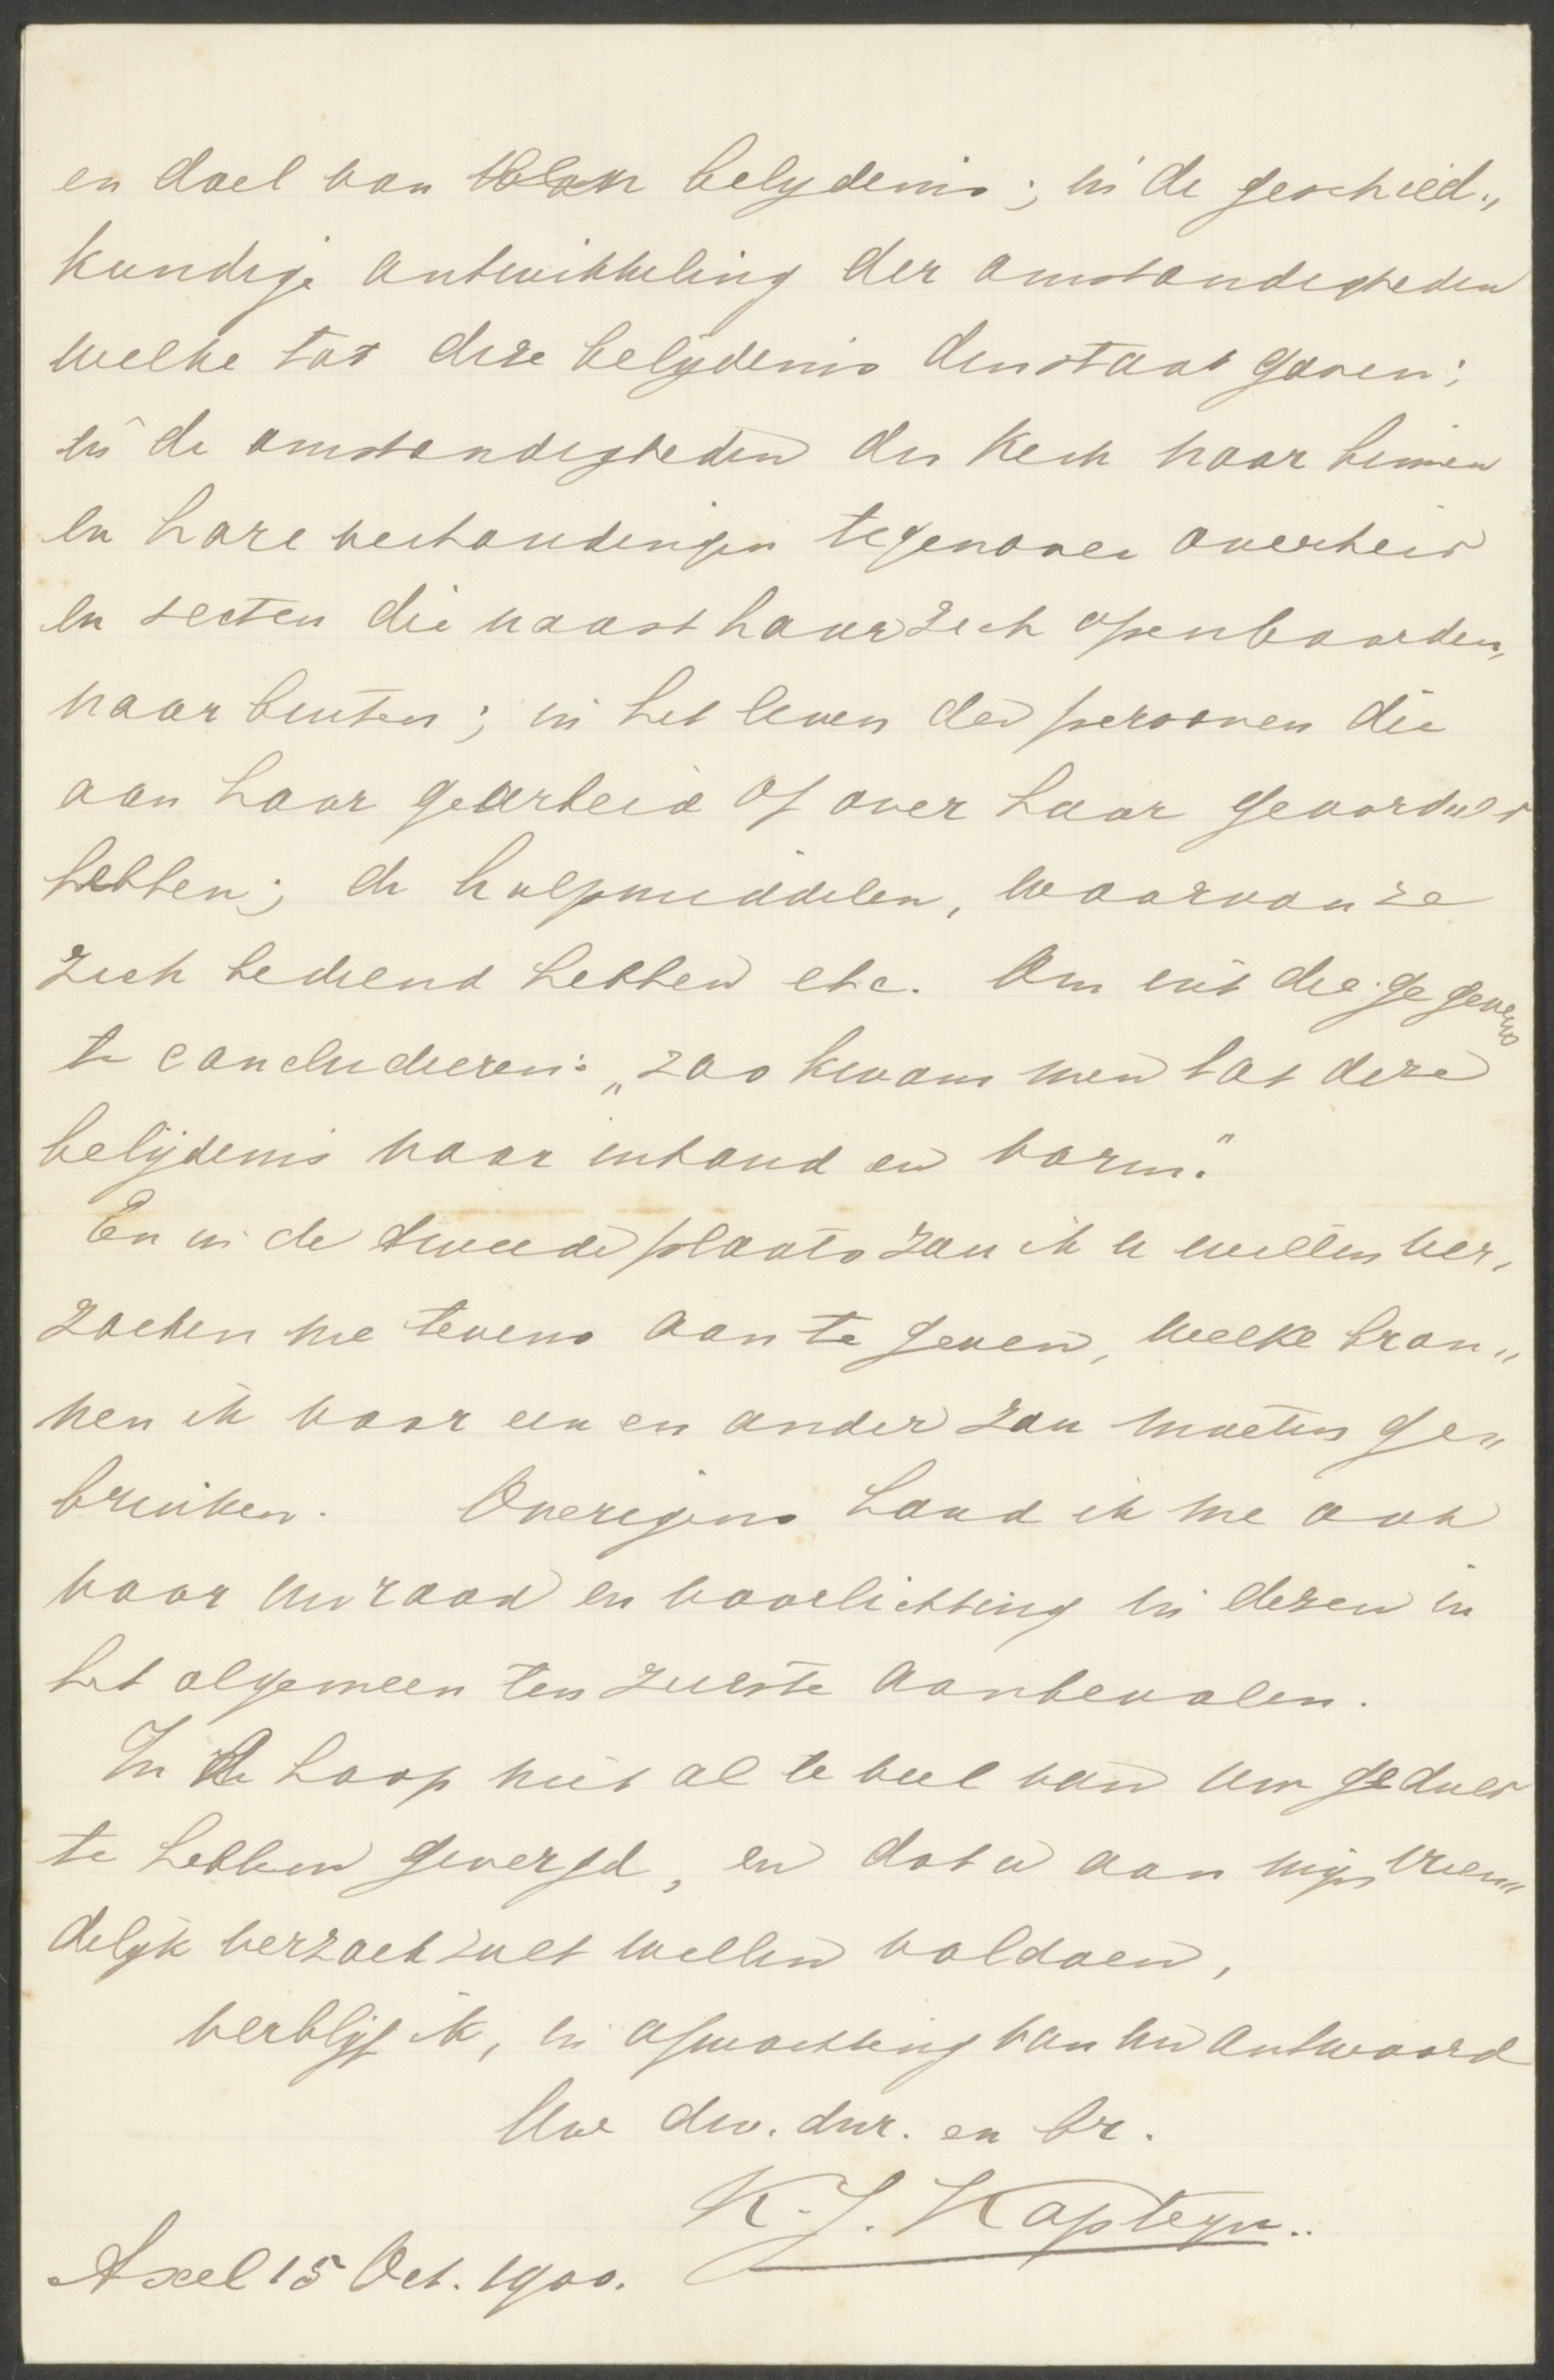 en doel van belydenis; in de geschied„
kundige ontwikkeling der omstandigheden
welke tot deze belijdenis den stoot gaven;
in de omstandigheden der Kerk naar binnen
en hare verhoudingen tegenover overheid
en secten die naast haar zich openbaarden,
naar buiten; in het leven der personen die
aan haar gearbeid of over haar geoordeeld
hebben; de hulpmiddelen, waarvan ze
zich bediend hebben etc. Om uit die gegevens
te concludeeren: „zoo kwam men tot deze
belijdenis naar inhoud en vorm."
En in de tweede plaats zou ik u willen ver„
zoeken me tevens aan te geven, welke bron„
nen ik voor een en ander zou moeten ge„
bruiken. Overigens houd ik me ook
voor uw raad en voorlichting in dezen in
het algemeen ten zeerste aanbevolen.
In de hoop niet al te veel van uw geduld
te hebben gevergd, en dat u aan mijn vrien„
delijk verzoek zult willen voldoen,
verblijf ik, in afwachting van uw antwoord
Uw dw. dnr. en br.
K. J. Kapteyn..
Axel 15 Oct. 1900.